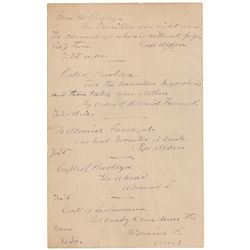 from the Brooklyn
The Monitors are right ahead
We cannot go ahead without passing
them
Capt Alden
7.25 a.m.
Capt of Brooklyn
Tell the Monitors to go ahead
and then take your station
By order of Admiral Farragut
To Admiral Farragut
our best Monitor is sunk
Capt Alden
7.35
Capt of Brooklyn
Go ahead
Admiral F.
Capt of Lackawanna
and run down the
ram
Admiral F.